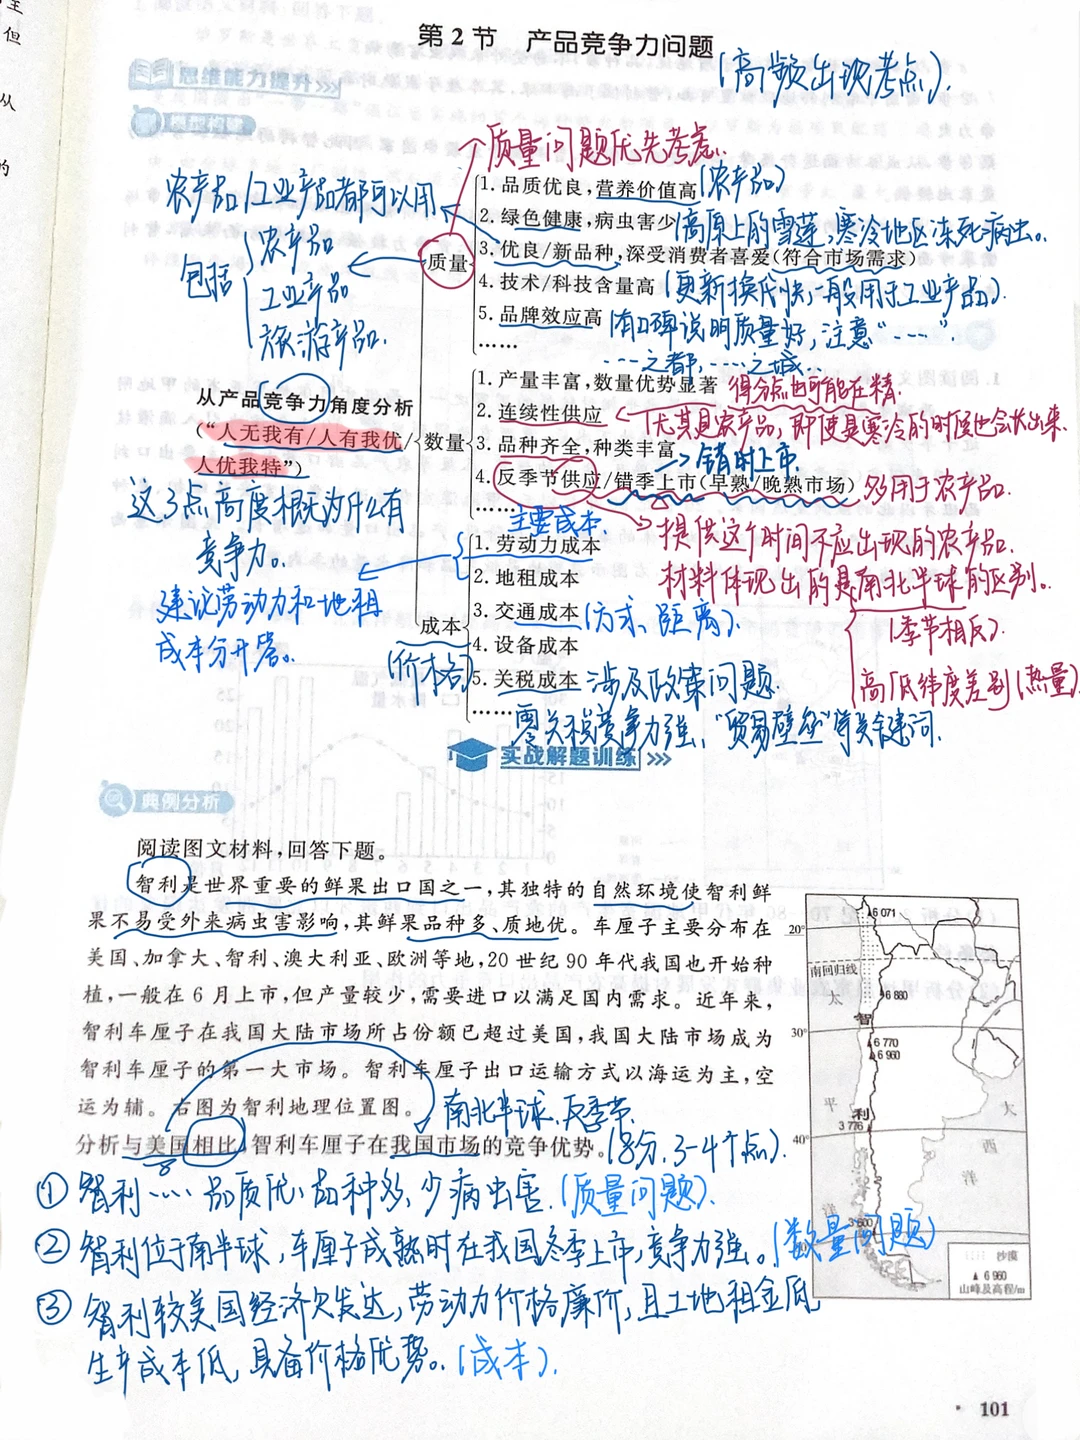 第2节 产品竞争力问题
(高频出现考点).
思维能力提升
模型构建
质量问题优先考虑.
农产品/工业产品都可以用
包括
农产品
工业产品
旅游产品.
质量
1. 品质优良,营养价值高(农产品)
2. 绿色健康,病虫害少(高原上的雪莲,寒冷地区冻死病虫。
3. 优良/新品种,深受消费者喜爱(符合市场需求)
4. 技术/科技含量高(更新换代快,一般用于工业产品).
5. 品牌效应高(有口碑说明质量好,注意“……”.
……
……之都,……之城..
从产品竞争力角度分析
(“人无我有/人有我优/
人优我特”)
这3点高度概括为什么有
竞争力。
数量
1. 产量丰富,数量优势显著 得分点也可能在精.
2. 连续性供应 (尤其是农产品,即使是寒冷的时候也会伏出来.
3. 品种齐全,种类丰富
错时上市.
4. 反季节供应/错季上市(早熟/晚熟市场) 多用于农产品.
……
提供这个时间不应出现的农产品.
材料体现出的是南北半球的区别。
(季节相反).
高低纬度差别(热量)
主要成本
成本
(价格)
1. 劳动力成本
2. 地租成本
3. 交通成本(方式、距离).
4. 设备成本
5. 关税成本 涉及政策问题.
……
零关税竞争力强,“贸易壁垒”等关键词.
建议劳动力和地租
成本分开答。
实战解题训练
典例分析
阅读图文材料,回答下题。
智利是世界重要的鲜果出口国之一,其独特的自然环境使智利鲜
果不易受外来病虫害影响,其鲜果品种多、质地优。车厘子主要分布在
美国、加拿大、智利、澳大利亚、欧洲等地,20世纪90年代我国也开始种
植,一般在6月上市,但产量较少,需要进口以满足国内需求。近年来,
智利车厘子在我国大陆市场所占份额已超过美国,我国大陆市场成为
智利车厘子的第一大市场。智利车厘子出口运输方式以海运为主,空
运为辅。右图为智利地理位置图。
南北半球.反季节.
分析与美国相比,智利车厘子在我国市场的竞争优势。(8分,3-4个点).
① 智利……品质优,品种多,少病虫害.(质量问题).
② 智利位于南半球,车厘子成熟时在我国冬季上市,竞争力强。(数量问题)
③ 智利较美国经济欠发达,劳动力价格廉价,且土地租金低,
生产成本低,具备价格优势。(成本).
6 071
20°
南回归线
太
6 880
智
30°
6 770
6 960
平
利
3 776
大
40°
西
洋
洋
3 600
沙漠
▲ 6 960
山峰及高程/m
101